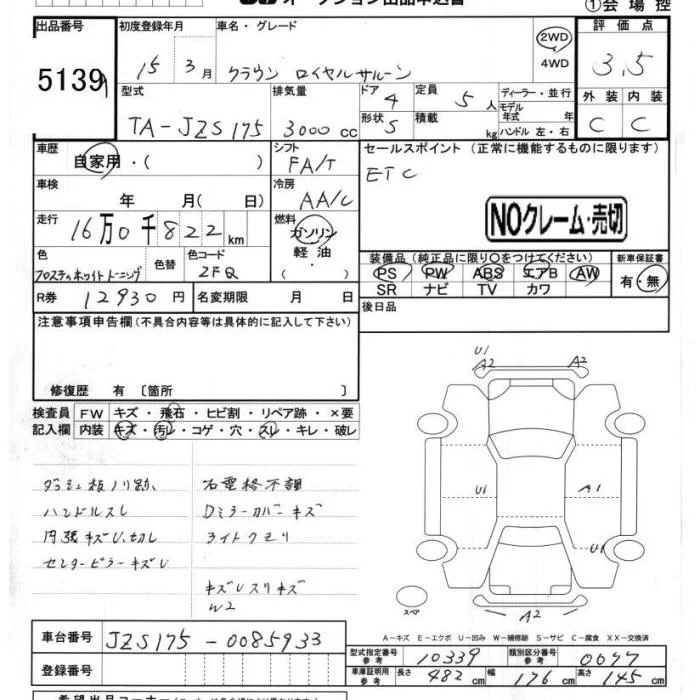 オークション出品申込書
①会場控
出品番号 初度登録年月 車名・グレード 評価点
5139 15年 3月 クラウン ロイヤルサルーン 2WD 4WD 3.5
型式 排気量 ドア 4 定員 5人 ディーラー・並行 外装 内装
TA-JZS175 3000cc 形状 5 積載 kg モデル年式 年 ハンドル 左・右 C C
車歴 自家用・( ) シフト FA/T セールスポイント (正常に機能するものに限ります)
車検 年 月(日) 冷房 AA/C ETC
走行 16万0千822km 燃料 ガソリン・軽油・( ) NOクレーム・売切
色 色替 色コード 装備品 (純正品に限り○をつけてください) 新車保証書
2FQ PS PW ABS エアB AW 有・無
SR ナビ TV カワ
R券 12930円 名変期限 月 日 後日品
注意事項申告欄 (不具合内容等は具体的に記入して下さい)
修復歴 有 〔箇所 〕
検査員 FW キズ・飛石・ヒビ割・リペア跡・×要
記入欄 内装 キズ・汚レ・コゲ・穴・スレ・キレ・破レ
ダッシュ板ノリ跡 右電格不調
ハンドルスレ Dミラーカバーキズ
内張キズU、切レ ライトクモリ
センターピラーキズU
キズUスリキズ
W2
U1
A2 A2
U1 A1
U1
スペア A2
A－キズ E－エクボ U－凹み W－補修跡 S－サビ C－腐食 XX－交換済
車台番号 JZS175-0085933 型式指定番号 参考 10339 類別区分番号 参考 0077
登録番号 車庫証明用 参考 長さ 482cm 幅 176cm 高さ 145cm
希望出品コーナー